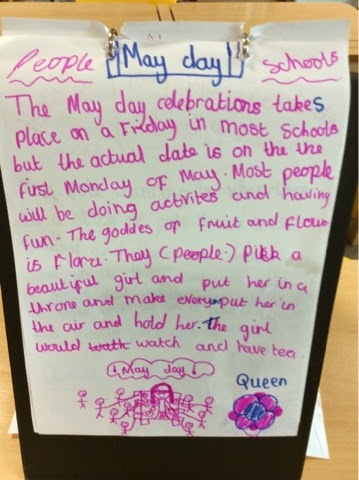 People May day Schools
The May day celebrations takes
place on a Friday in most schools
but the actual date is on the the
first Monday of May. Most people
will be doing activites and having
fun. The goddes of fruit and flows
is Flora. They (people) pick a
beautiful girl and put her in a
throne and make every put her in
the air and hold her. The girl
would watch and have tea.
May day
Queen